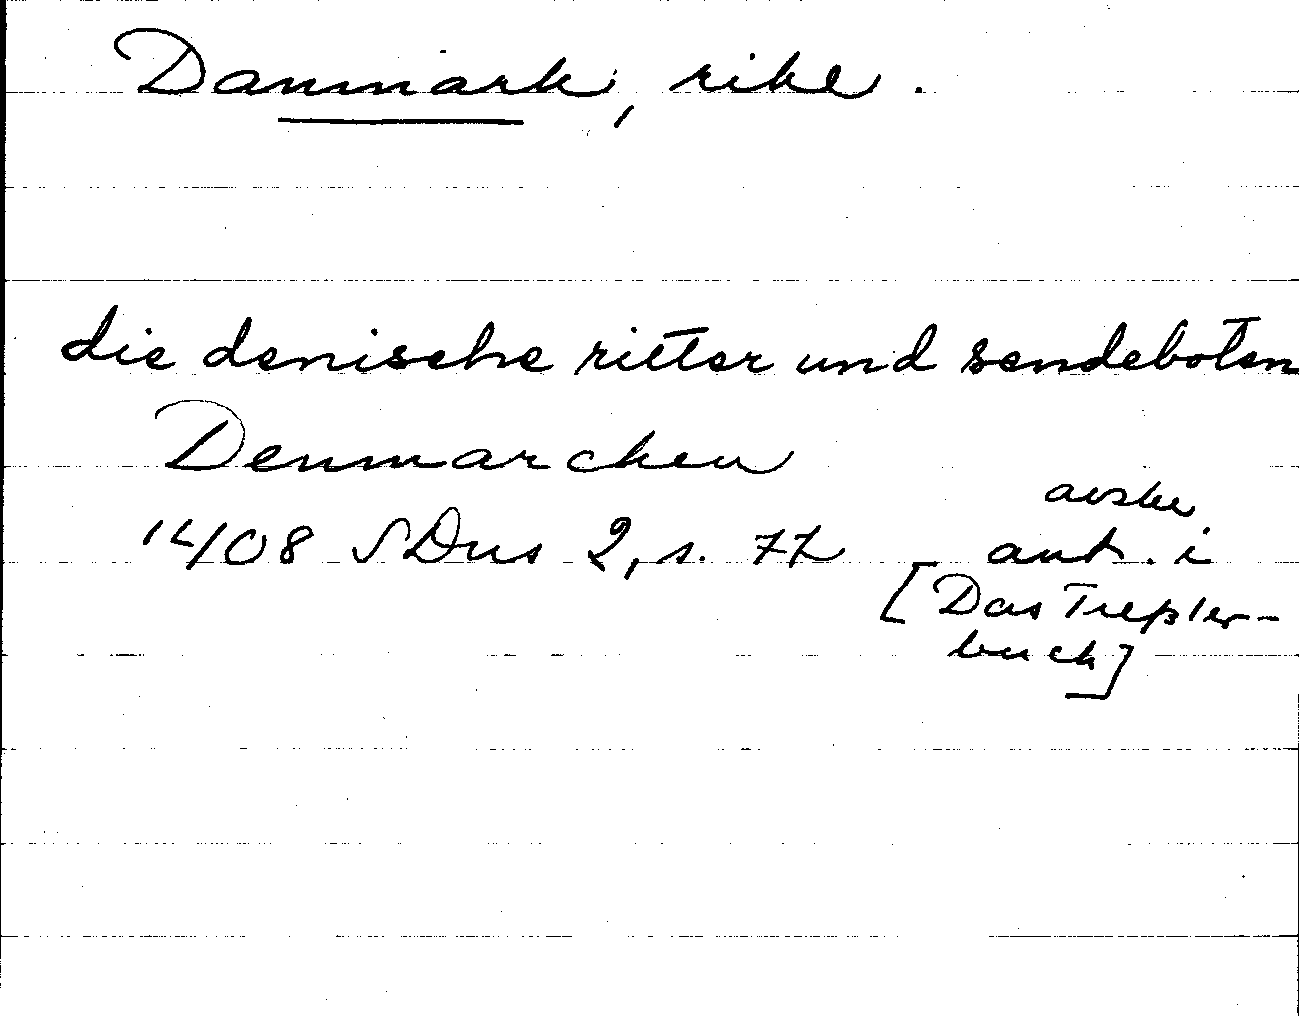 Danmark, rike.
die denische ritter und sendeboten
Denmarchen
avskr
1408 SDns 2, s. 77 ant. i
[Das Tresler-
buch]